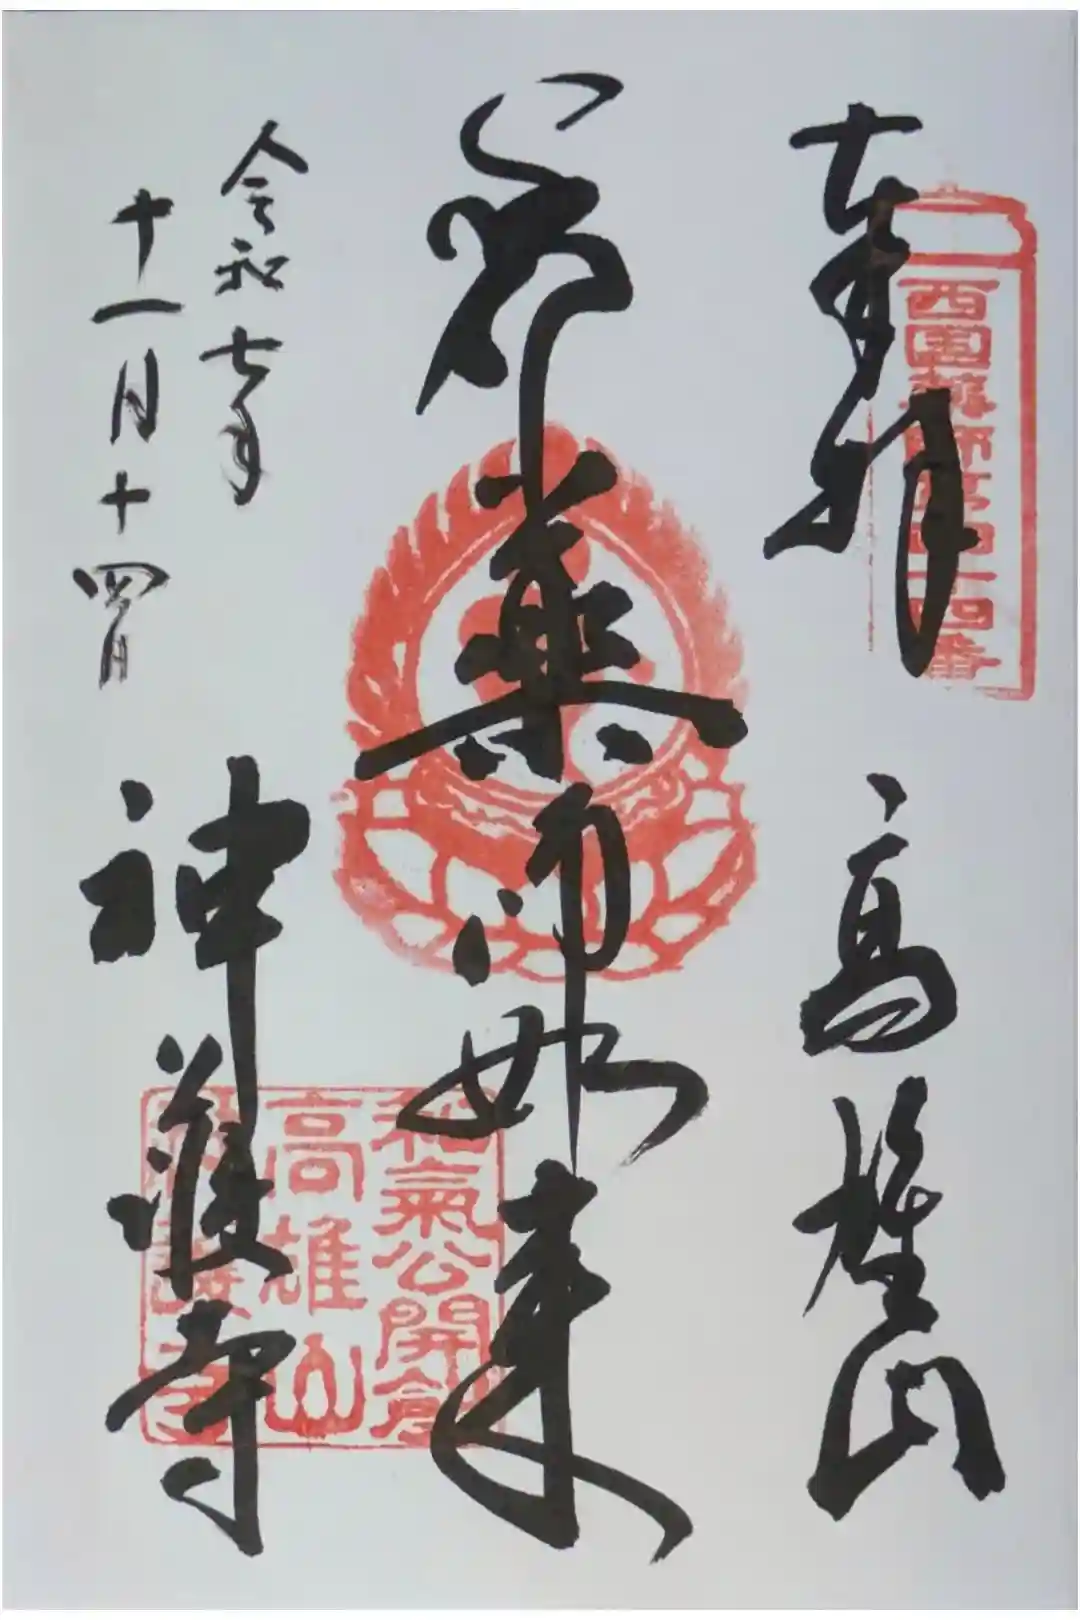 奉拝
西國薬師第四十四番
高雄山
薬師如来
令和七年
十一月十四日
神護寺
和氣公開創
高雄山
神護寺